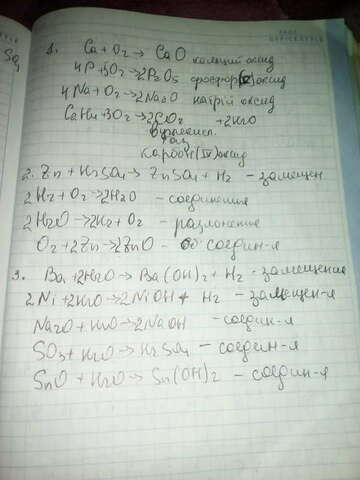 1. Ca + O₂ → CaO кальций оксид
4P + 5O₂ → 2P₂O₅ фосфор (V) оксид
4Na + O₂ → 2Na₂O натрій оксид
C₂H₄ + 3O₂ → 2CO₂ + 2H₂O
газ
карбон (IV) оксид
2. Zn + H₂SO₄ → ZnSO₄ + H₂ - замещен.
2H₂ + O₂ → 2H₂O - соединения
2H₂O → 2H₂ + O₂ - разложение
O₂ + 2Zn → 2ZnO - соедин-я
3. Ba + 2H₂O → Ba(OH)₂ + H₂ - замещение
2Ni + 2H₂O → 2NiOH + H₂ - замещен-я
Na₂O + H₂O → 2NaOH - соедин-я
SO₃ + H₂O → H₂SO₄ - соедин-я
SnO + H₂O → Sn(OH)₂ - соедин-я